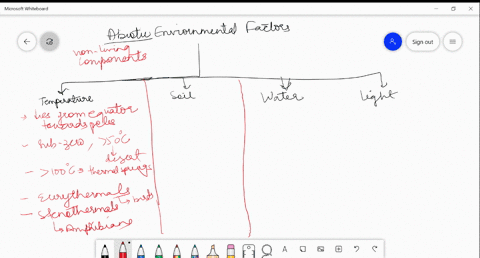 Microsoft Whiteboard
Abiotic Environmental Factors
non-living
components
Sign out
Temperature
Soil
Water
Light
from equator
towards poles
- sub-zero, >50°C
desert
- >100°C thermal springs
- Eurythermals
birds
- Stenothermals
Amphibians